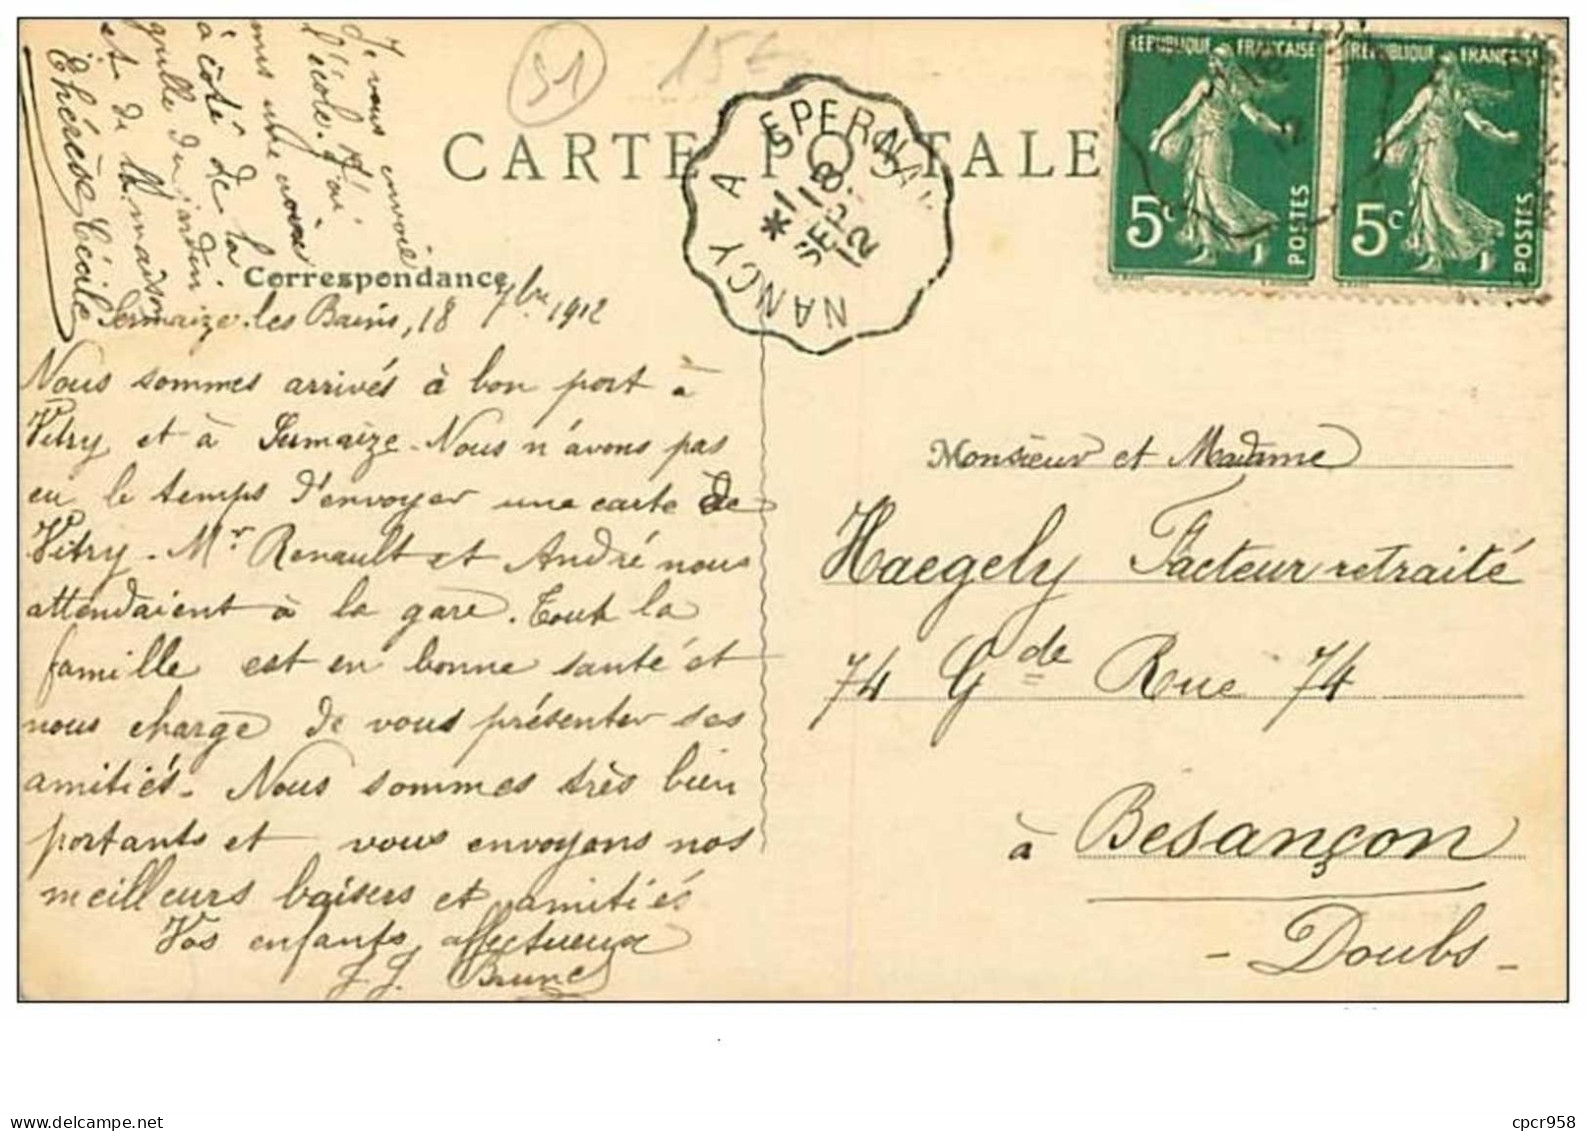 Je vous envoie
l'école. J'ai
mis une croix
à côté de la
grille du jardin
et de la maison
Thérèse Cécile
51
15€
CARTE POSTALE
NANCY A EPERNAY
*1 18
SEPT.
12
REPUBLIQUE FRANÇAISE
5c
POSTES
REPUBLIQUE FRANÇAISE
5c
POSTES
Correspondance
Sermaize-les Bains, 18 7bre 1912
Nous sommes arrivés à bon port à
Vitry et à Sermaize. Nous n'avons pas
eu le temps d'envoyer une carte de
Vitry. Mr Renault et André nous
attendaient à la gare. Tout la
famille est en bonne santé et
nous charge de vous présenter ses
amitiés. Nous sommes très bien
portants et vous envoyons nos
meilleurs baisers et amitiés
Vos enfants affectueux
J. J. Brunel
Monsieur et Madame
Haegely Facteur retraité
74 Gde Rue 74
à Besançon
- Doubs -
www.delcampe.net
cpcr958